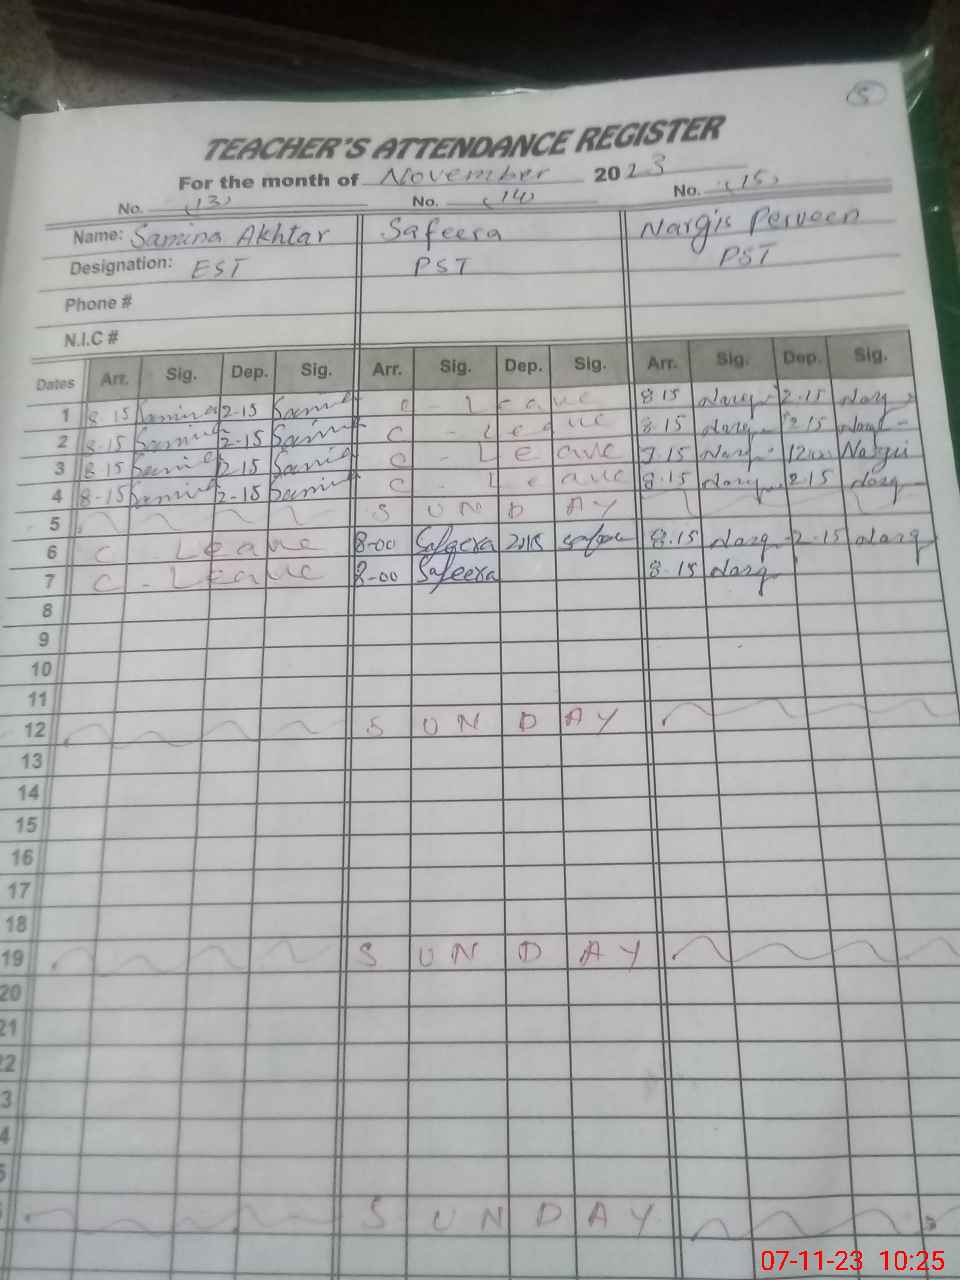 5
TEACHER'S ATTENDANCE REGISTER
For the month of November 2023
No. (13) No. (14) No. (15)
Name: Samina Akhtar Safeera Nargis Perveen
Designation: EST PST PST
Phone #
N.I.C #
Dates Arr. Sig. Dep. Sig. Arr. Sig. Dep. Sig. Arr. Sig. Dep. Sig.
1 8.15 Samina 2-15 Samina C - Leave 8.15 Narg 2.15 Narg
2 8.15 Samina 2-15 Samina C - Leave 8.15 Narg 2.15 Narg
3 8.15 Samina 2-15 Samina C - Leave 7.15 Narg 12.00 Nargis
4 8-15 Samina 2-15 Samina C - Leave 8.15 Narg 2.15 Narg
5 SUNDAY
6 C - Leave 8-00 Safeera 2.15 Safeera 8.15 Narg 2.15 Narg
7 C - Leave 8-00 Safeera 8.15 Narg
8
9
10
11
12 SUNDAY
13
14
15
16
17
18
19 SUNDAY
20
21
22
3
4
5
SUNDAY
07-11-23 10:25